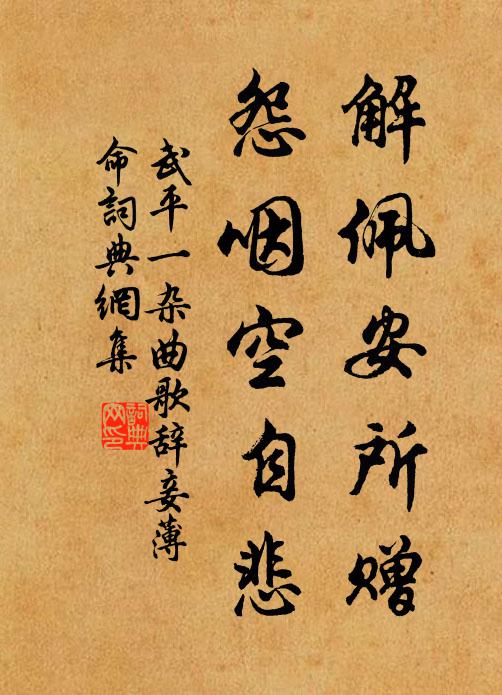 解佩安所赠
怨咽空自悲
武平一杂曲歌辞妾薄
命詞典網集
詞典
网印